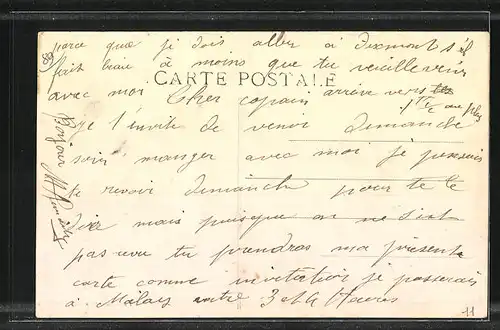 parce que je dois aller à dixmont s'il
fait beau à moins que tu veuille venir
avec moi
CARTE POSTALE
Cher copain arrive vers
au plus
je t'invite de venir dimanche
soir manger avec moi je pensais
te revoir dimanche pour te le
dire mais puisque on ne s'est
pas revu tu prendras ma présente
carte comme invitation je passerais
à Malay entre 3 et 4 Heures
Bonjour
11